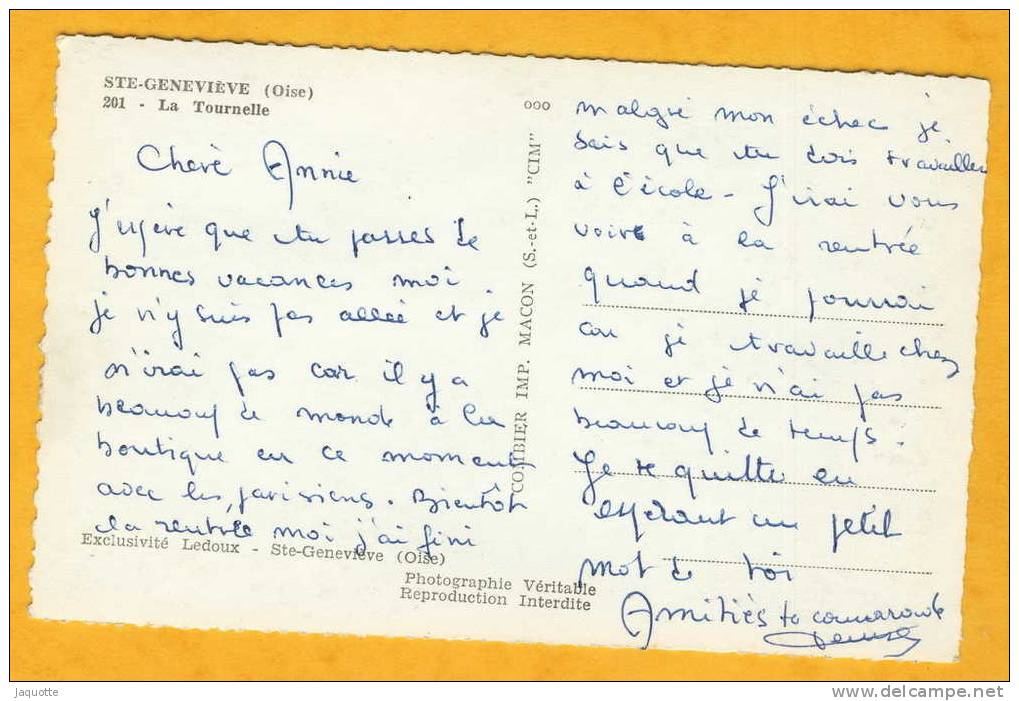 STE-GENEVIÈVE (Oise)
201 - La Tournelle
Chère Annie
J'espère que tu passes de
bonnes vacances moi
je n'y suis pas allée et je
n'irai pas car il y a
beaucoup de monde à la
boutique en ce moment
avec les parisiens. Bientôt
la rentrée moi j'ai fini
Exclusivité Ledoux - Ste-Geneviève (Oise)
Photographie Véritable
Reproduction Interdite
COMBIER IMP. MACON (S.-et-L.) "CIM"
ooo
malgré mon échec je
sais que tu dois travailler
à l'école - J'irai vous
voir à la rentrée
quand je pourrai
car je travaille chez
moi et je n'ai pas
beaucoup de temps.
Je te quitte en
espérant un petit
mot de toi
Amitiés ta camarade
Denise
Jaquotte
www.delcampe.net